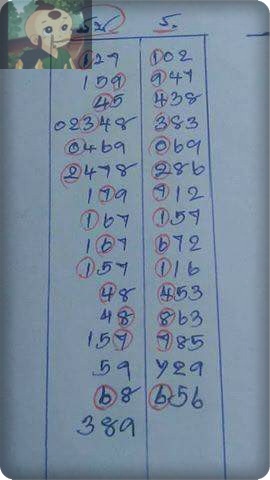 ร.
127 102
159 947
45 438
02348 383
0469 069
2478 286
179 712
167 157
167 672
157 116
48 453
48 863
157 785
59 729
68 656
389